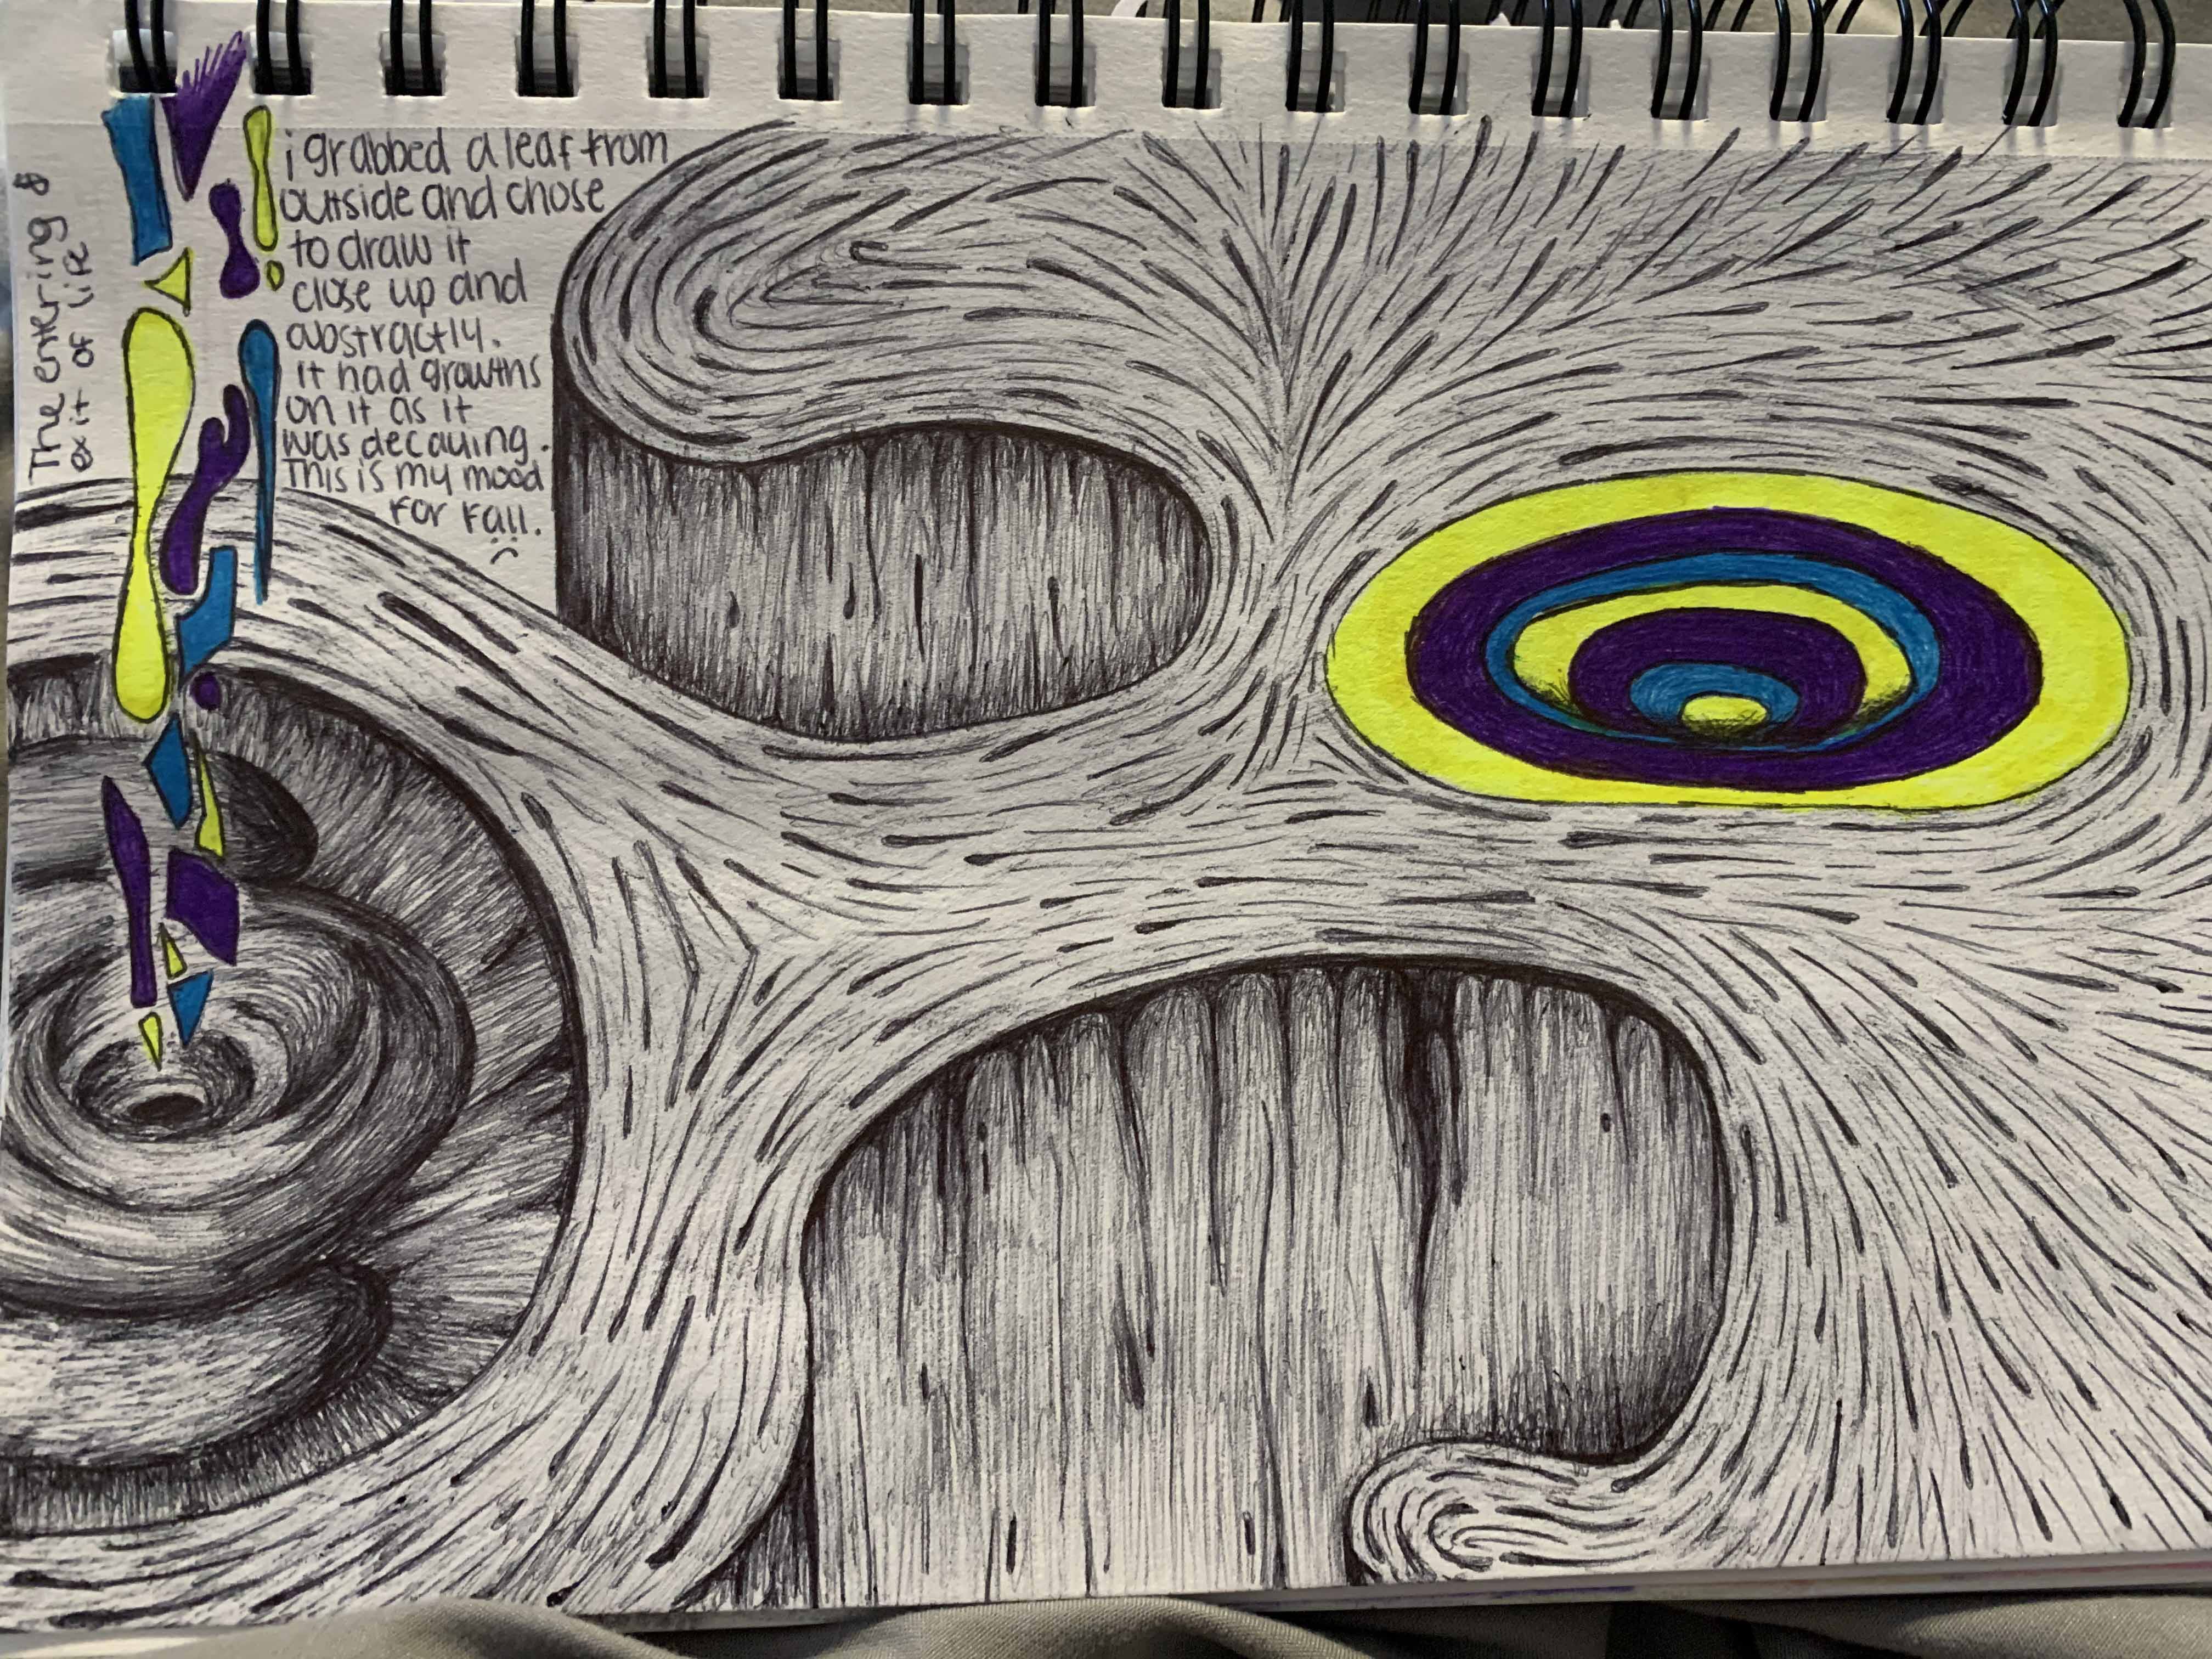 The entering &
exit of life
i grabbed a leaf from
outside and chose
to draw it
close up and
abstractly.
it had growths
on it as it
was decaying.
This is my mood
for Fall.